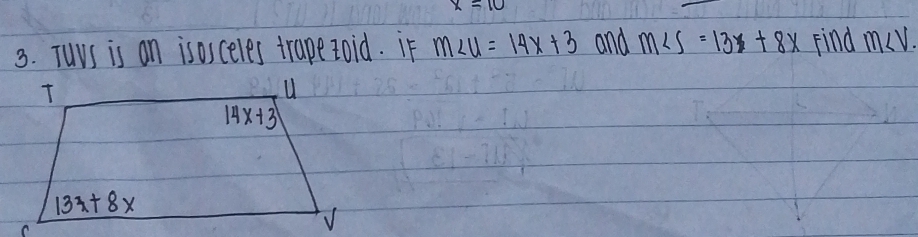 x = 10
3. TUVS is an isosceles trapezoid. if m<U = 14x+3 and m<S = 13x + 8x Find m<V.
T U
14x+3
13x+8x
V